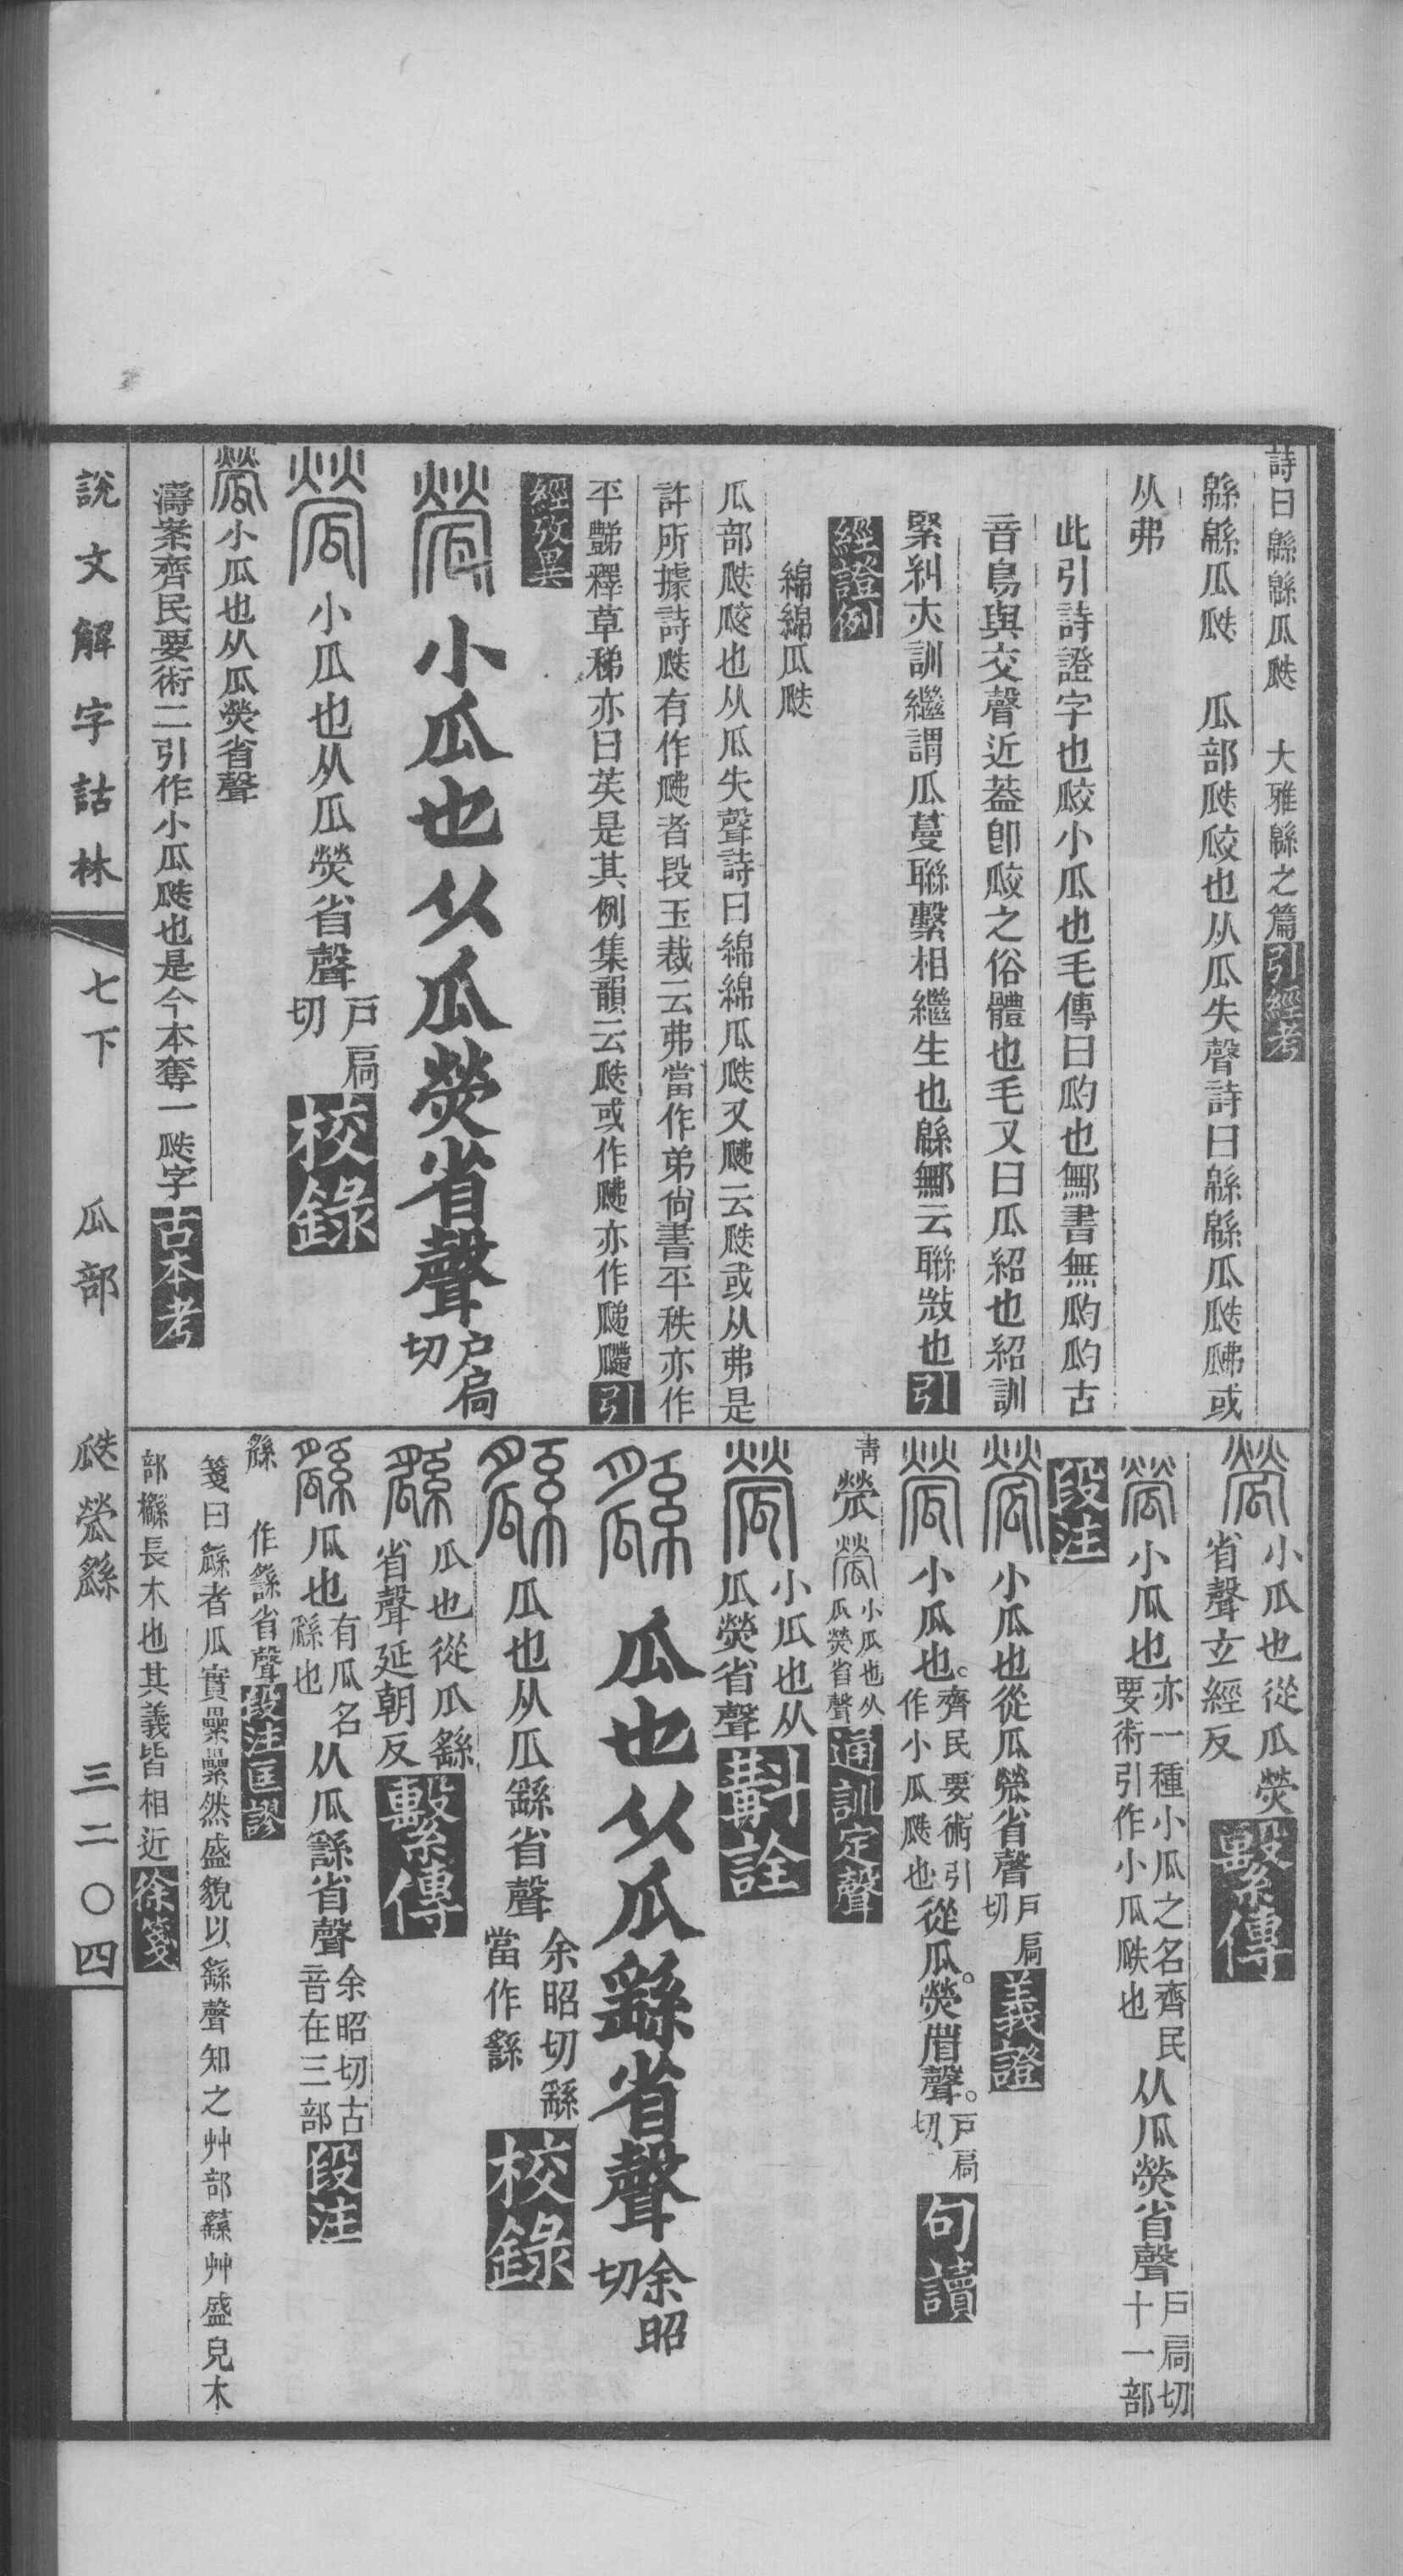 詩曰緜緜瓜瓞　大雅緜之篇引經考
緜緜瓜瓞　瓜部瓞㼎也从瓜失聲詩曰緜緜瓜瓞𤬏或
从弗
此引詩證字也㼎小瓜也毛傳曰瓝也鄦書無瓝瓝古
音與交聲近葢卽㼎之俗體也毛又曰瓜紹也紹訓
緊糾夾訓繼謂瓜蔓聯繫相繼生也緜鄦云聯𢼸也引
經證例
綿綿瓜瓞
瓜部瓞㼎也从瓜失聲詩曰綿綿瓜瓞又𤬏云瓞或从弗是
許所據詩瓞有作𤬏者段玉裁云弗當作弟尙書平秩亦作
平豑釋草稊亦曰苵是其例集韻云瓞或作𤬏亦作引
經攷異
小瓜也从瓜熒省聲戶扃切
小瓜也从瓜熒省聲戶扃切校錄
小瓜也从瓜熒省聲
濤案齊民要術二引作小瓜瓞也是今本奪一瓞字古本考
小瓜也從瓜熒省聲玄經反繫傳
小瓜也亦一種小瓜之名齊民要術引作小瓜瓞也从瓜熒省聲戶扃切十一部
段注
小瓜也從瓜熒省聲戶扃切義證
小瓜也。齊民要術引作小瓜瓞也從瓜。熒省聲。戶扃切句讀
青㼆小瓜也从瓜熒省聲通訓定聲
小瓜也从瓜熒省聲斠詮
瓜也从瓜繇省聲余昭切
瓜也从瓜繇省聲余昭切繇當作䌛校錄
瓜也從瓜繇省聲延朝反繫傳
瓜也有瓜名䍃也从瓜䌛省聲余昭切古音在三部段注
作䌛省聲段注匡謬
箋曰者瓜實纍纍然盛貌以繇聲知之艸部蘨艸盛皃木
部櫾長木也其義皆相近徐箋
說文解字詁林　七下　瓜部　瓞㼆　三二〇四